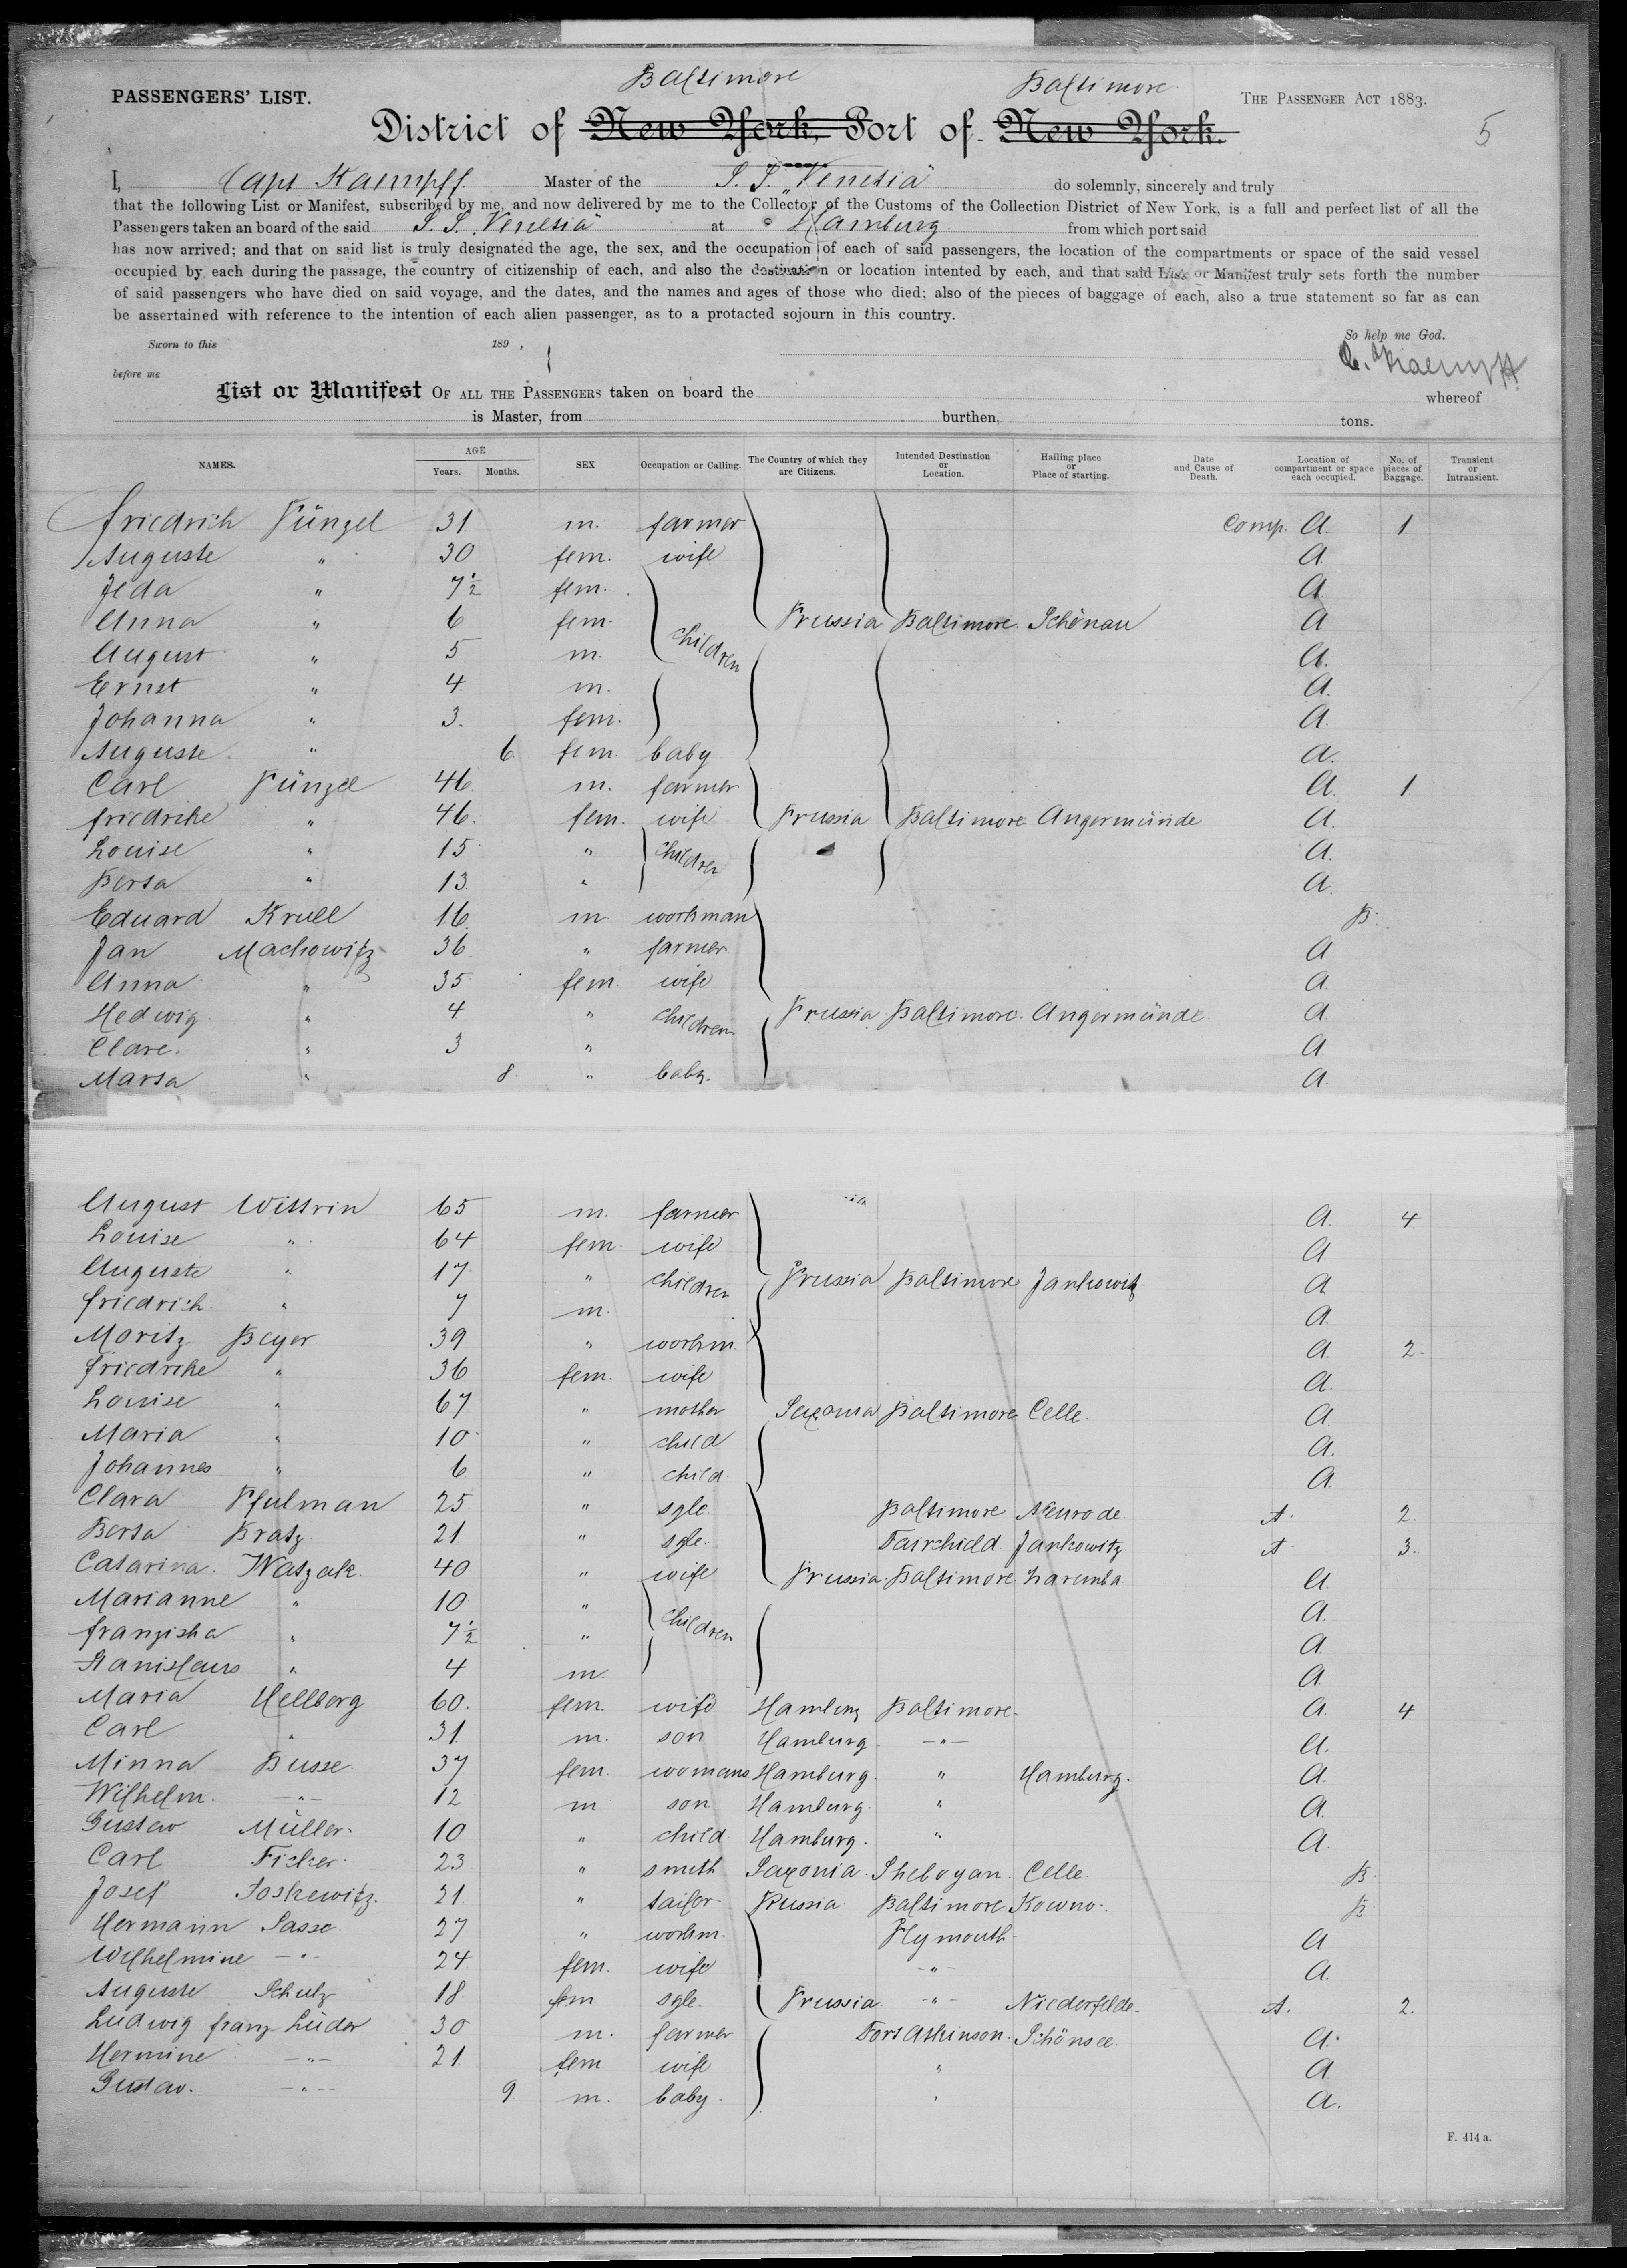 Baltimore Baltimore
PASSENGERS' LIST. THE PASSENGER ACT 1883.
District of New York, Port of New York. 5
I, Capt Kaempff Master of the S. S. "Venetia" do solemnly, sincerely and truly
that the following List or Manifest, subscribed by me, and now delivered by me to the Collector of the Customs of the Collection District of New York, is a full and perfect list of all the
Passengers taken an board of the said S. S. Venetia at Hamburg from which port said
has now arrived; and that on said list is truly designated the age, the sex, and the occupation of each of said passengers, the location of the compartments or space of the said vessel
occupied by each during the passage, the country of citizenship of each, and also the destination or location intented by each, and that said List or Manifest truly sets forth the number
of said passengers who have died on said voyage, and the dates, and the names and ages of those who died; also of the pieces of baggage of each, also a true statement so far as can
be assertained with reference to the intention of each alien passenger, as to a protacted sojourn in this country.
Sworn to this 189 , So help me God.
before me C. Kaempff
List or Manifest OF ALL THE PASSENGERS taken on board the whereof
is Master, from burthen, tons.
NAMES. AGE Years. Months. SEX Occupation or Calling. The Country of which they are Citizens. Intended Destination or Location. Hailing place or Place of starting. Date and Cause of Death. Location of compartment or space each occupied. No. of pieces of Baggage. Transient or Intransient.
Friedrich Pünzel 31 m. farmer Comp. A. 1
Auguste " 30 fem. wife A
Jeda " 7½ fem. A
Anna " 6 fem. children Prussia Baltimore Schönau A
August " 5 m. A.
Ernst " 4 m. A.
Johanna " 3. fem. A.
Auguste " 6 fem. baby A.
Carl Pünzel 46 m. farmer A. 1
Friedrike " 46. fem. wife Prussia Baltimore Angermünde A.
Louise " 15 " children A.
Berta " 13 " A.
Eduard Krull 16 m workman B.
Jan Machowitz 36 " farmer A
Anna " 35 fem. wife A
Hedwig " 4 " children Prussia Baltimore Angermünde A
Clare. " 3 " A
Marta " 8 " baby. A
August Wittrin 65 m. farmer A. 4
Louise " 64 fem. wife A
Auguste " 17 " children Prussia Baltimore Jankowitz A
Friedrich " 7 m. A
Moritz Beyer 39 " workm. A 2
Friedrike " 36 fem. wife A.
Louise " 67 " mother Saxonia Baltimore Celle A
Maria " 10 " child A.
Johannes " 6 " child A
Clara Pfulman 25 " sgle Baltimore Neurode A. 2.
Berta Bratz 21 " sgle. Fairchild Jankowitz A 3.
Catarina Watzak 40 " wife Prussia Baltimore Zaremba A.
Marianne " 10 " children A.
Franziska " 7½ " A
Stanislaus " 4 m. A
Maria Hellberg 60. fem. wife Hamburg Baltimore A. 4
Carl " 31 m. son Hamburg -"- A.
Minna Busse 37 fem. womans Hamburg " Hamburg. A.
Wilhelm. -"- 12 m son Hamburg " A.
Gustav Müller 10 " child Hamburg. " A.
Carl Ficker 23 " smith Saxonia Sheboyan Celle B.
Josef Toskewitz 21 " tailor Russia Baltimore Kowno B
Hermann Sasse 27 " workm. Plymouth A
Wilhelmine -"- 24 fem. wife -"- A
Auguste Schulz 18. fem sgle Prussia -"- Niederfelde A. 2.
Ludwig Franz Lüder 30 m. farmer Fort Atkinson Schönsee A.
Hermine -"- 21 fem wife " A
Gustav. -"- 9 m. baby " A.
F. 414 a.